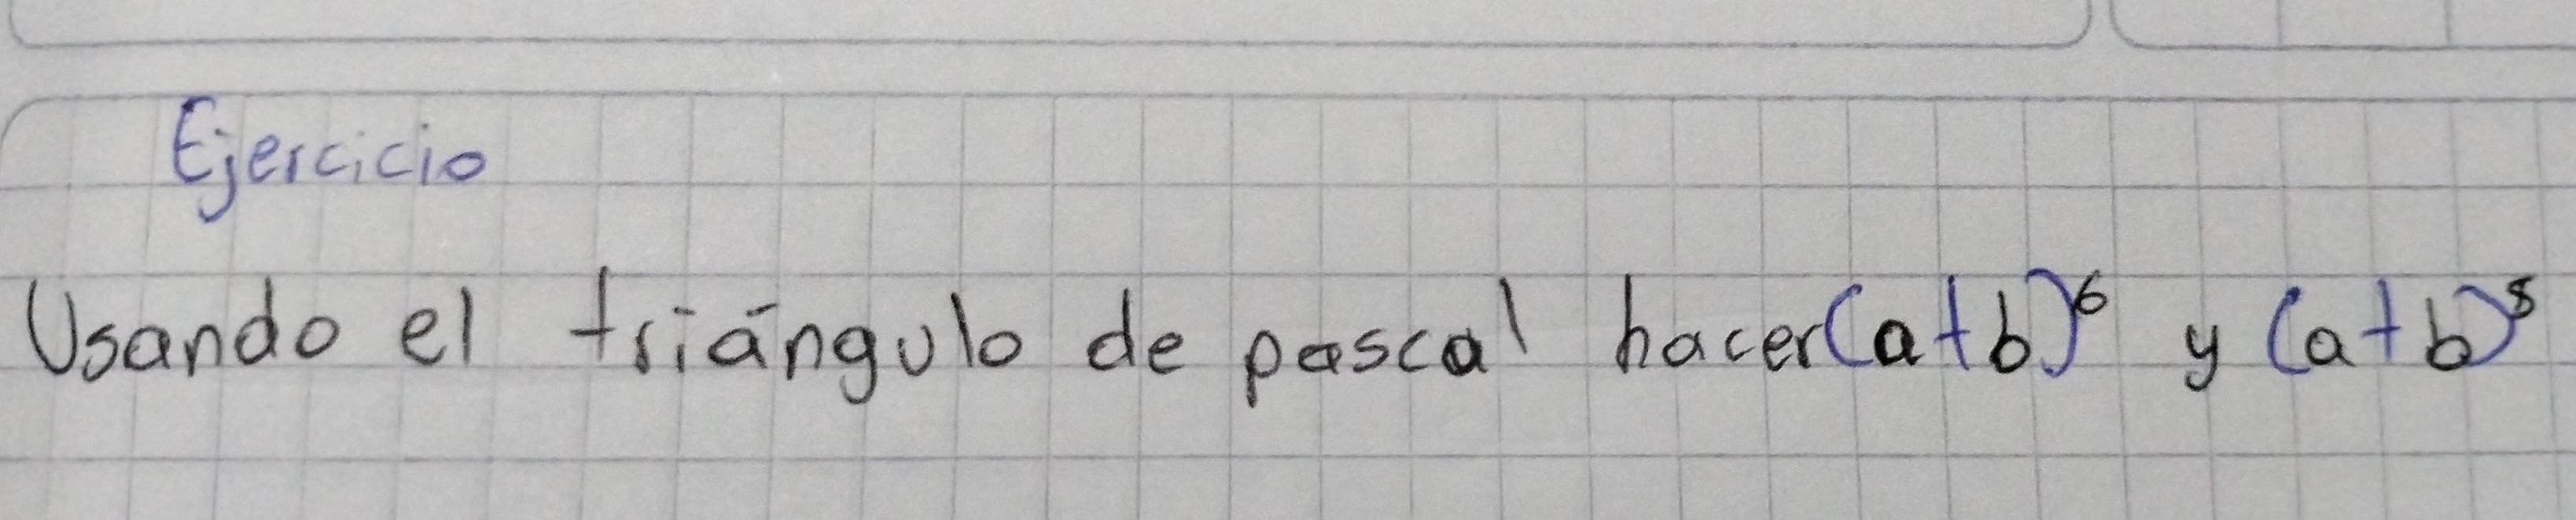 Ejercicio
Usando el triángulo de pascal hacer (a+b)⁶ y (a+b)⁸